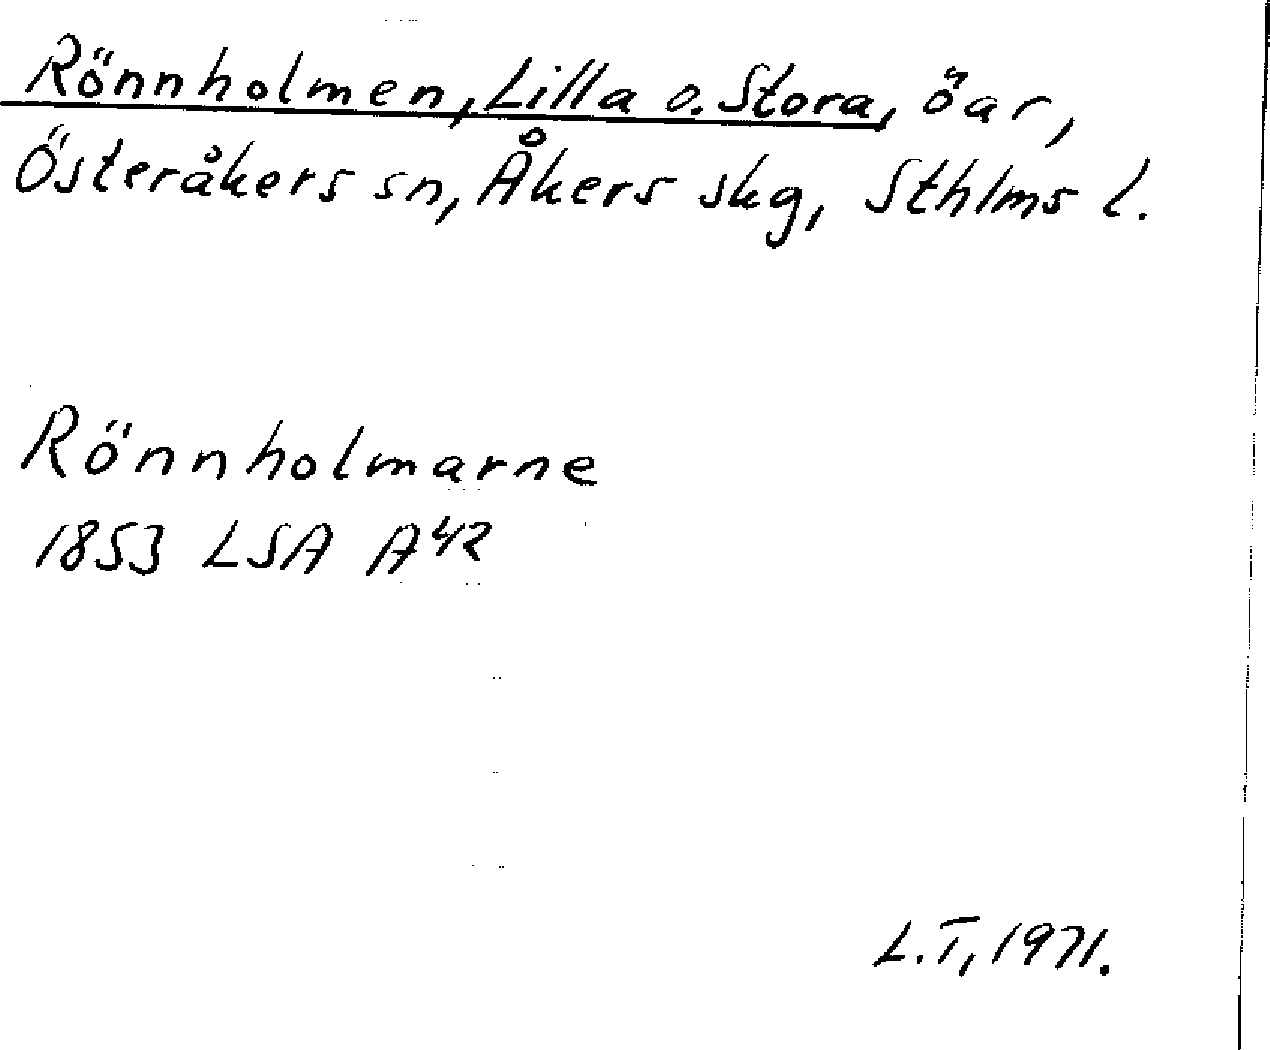 Rönnholmen, Lilla o. Stora, öar,
Österåkers sn, Åkers skg, Sthlms l.
Rönnholmarne
1853 LSA A42
L.T, 1971.